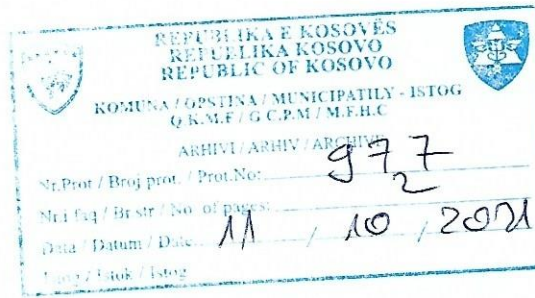 REPUBLIKA E KOSOVËS
REPUBLIKA KOSOVO
REPUBLIC OF KOSOVO
KOMUNA / OPSTINA / MUNICIPATILY - ISTOG
Q.K.M.F / G.C.P.M / M.F.H.C
ARHIVI / ARHIV / ARCHIVE
Nr.Prot / Broj prot. / Prot.No: 977
Nr.i faq / Br str / No. of pages: 2
Data / Datum / Date: 11 / 10 / 2021
Istog / Istok / Istog